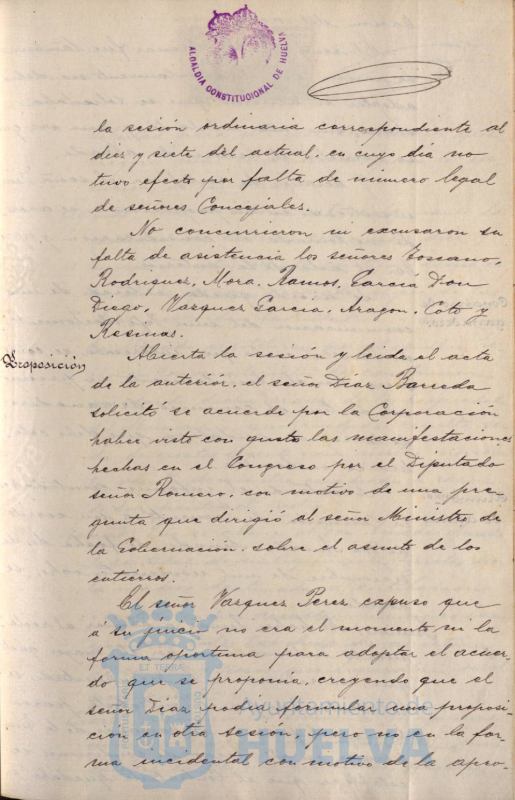 ALCALDIA CONSTITUCIONAL DE HUELVA
la sesión ordinaria correspondiente al
diez y siete del actual, en cuyo dia no
tuvo efecto por falta de número legal
de señores Concejales.
No concurrieron ni excusaron su
falta de asistencia los señores Toscano,
Rodriguez, Mora, Ramos, García Don
Diego, Vazquez Garcia, Aragon, Coto y
Resinas.
Proposición
Abierta la sesión y leida el acta
de la anteriór, el señor Diaz Barreda
solicitó se acuerde por la Corporación
haber visto con gusto las manifestaciones
hechas en el Congreso por el Diputado
señor Romero, con motivo de una pre-
gunta que dirigió al señor Ministro de
la Gobernación, sobre el asunto de los
entierros.
El señor Vazquez Perez expuso que
á su juicio no era el momento ni la
forma oportuna para adoptar el acuer-
do que se proponia, creyendo que el
señor Diaz podia formular una proposi-
ción en otra sesión, pero no en la for-
ma incidental con motivo de la apro-
Ayuntamiento de
HUELVA